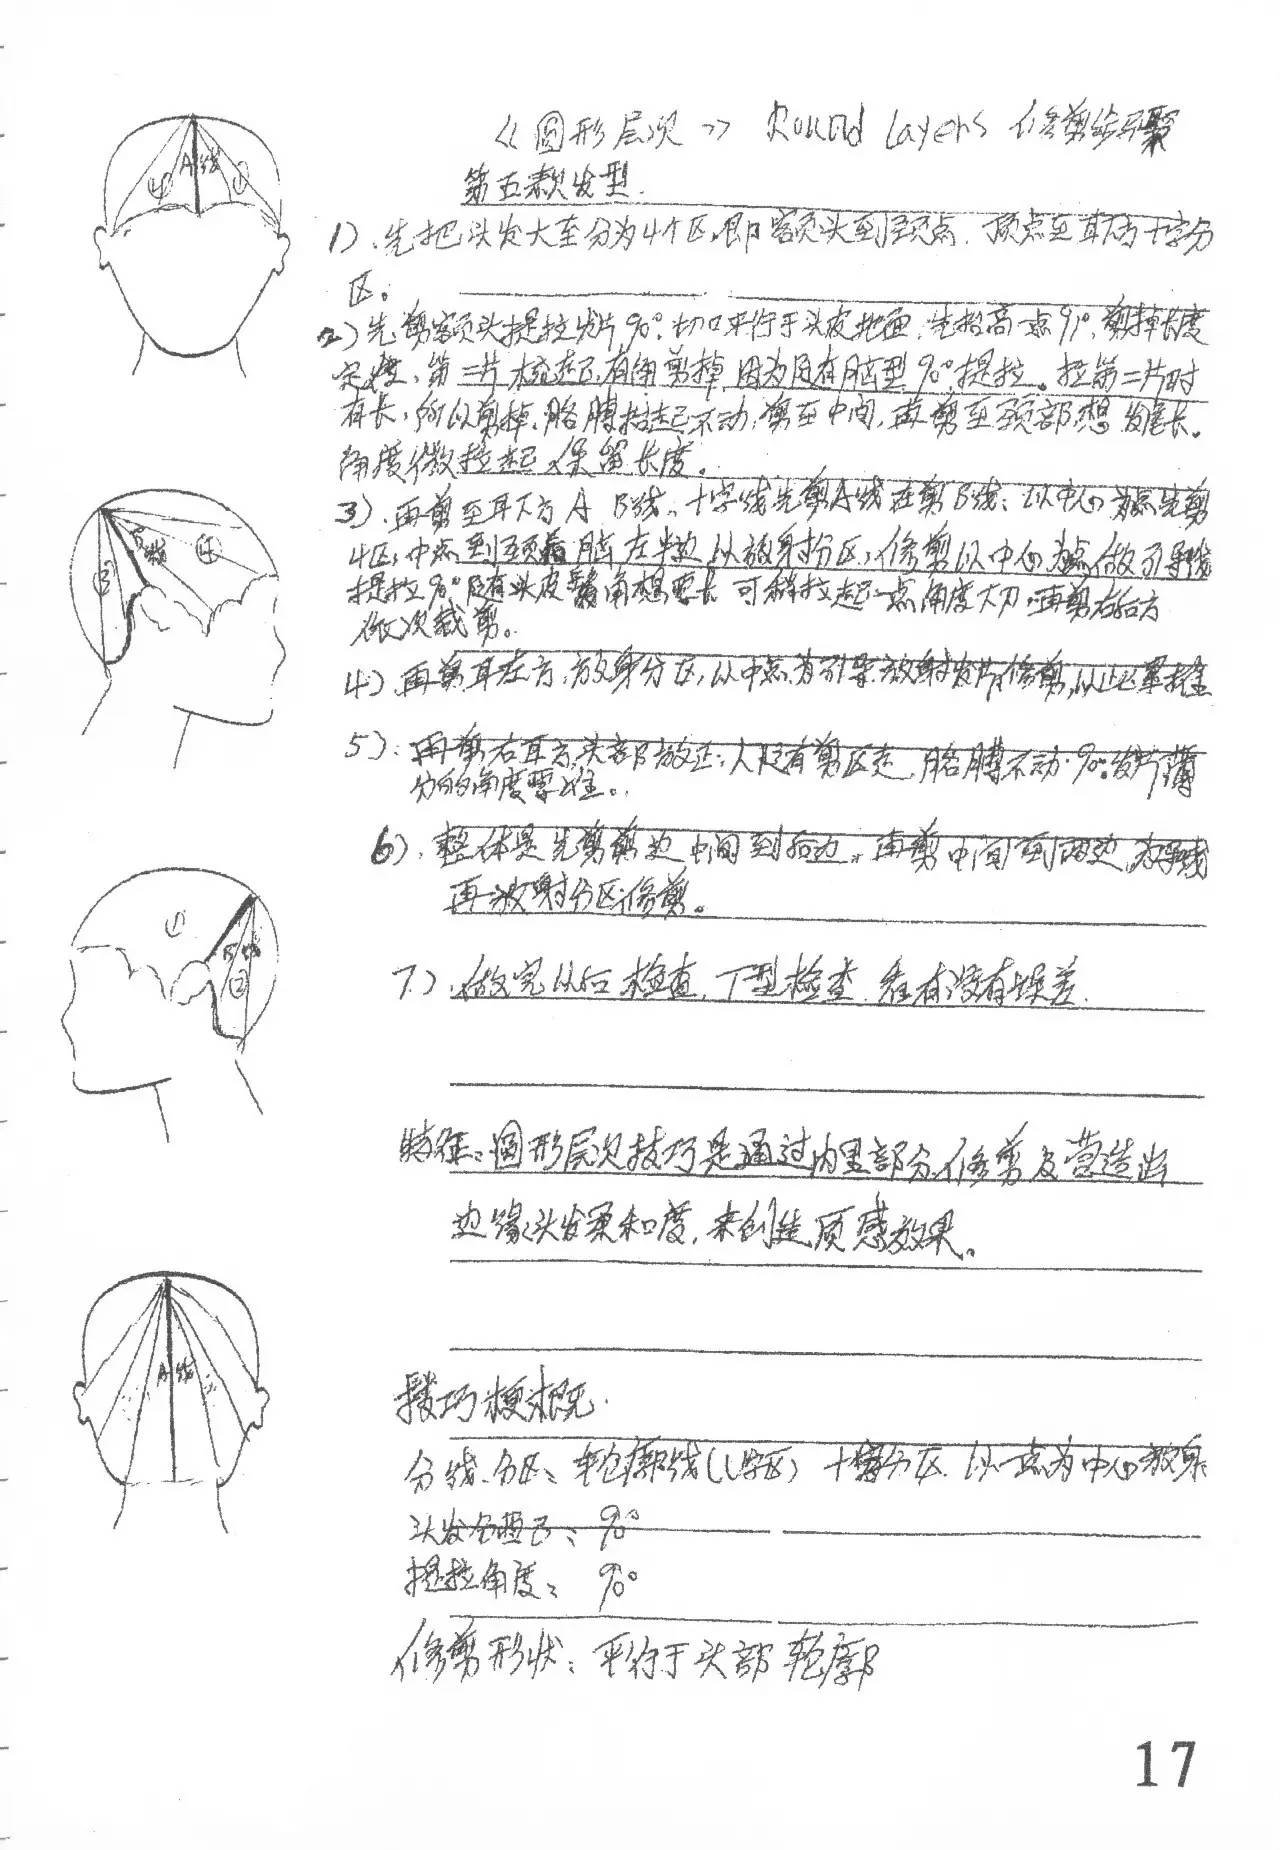 《圆形层次》 Round Layers 修剪步骤
第五款发型.
1)、先把头发大至分为4个区,即额头到颈点.顶点至耳下方十字分
区。
2)先剪额头提拉发片90°.切口平行于头皮地面,先抬高一点91°,剪掉长度
第二片 有角剪掉,因为 有脑型90°提拉。拉第二片时
有长,所以剪掉.胳膊抬起不动,剪至中间,再剪至颈部想发尾长。
角度微拉起 保留长度。
3)、再剪至耳下方A B线、十字线先剪A线在剪B线;以中心为点先剪
4区,中点到颈 脑左半边以放身分区,修剪以中心为点做引导线
提拉90° 有头皮 角想要长 可稍拉起一点角度大刀.再剪右后方
依次裁剪。
4)、再剪耳左方,放身分区,以中点为引导放射发片修剪,以此
5)、再剪右耳方头部放正,人 有剪区走,胳膊不动.90°发片薄
分的角度要准。
6)、整体是先剪 边中间到后边。再剪中间到两边,为导线
再放射分区修剪。
7)、做完从后检查,丁型检查.看有没有误差.
特征:圆形层次技巧是通过内里部分修剪及营造出
边缘头发柔和度,来创造质感效果。
技巧梗概.
分线、分区:轮廓线(U字区) 十字分区.以一点为中心放身
头发 : 90°
提拉角度: 90°
修剪形状:平行于头部轮廓
A线
④
①
B线
③
④
①
B线
②
A线
17